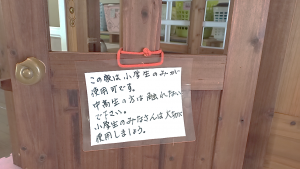 この駒は小学生のみが
使用可です。
中高生の方は触れないで
下さい。
小学生のみなさんは大切に
使用しましょう。